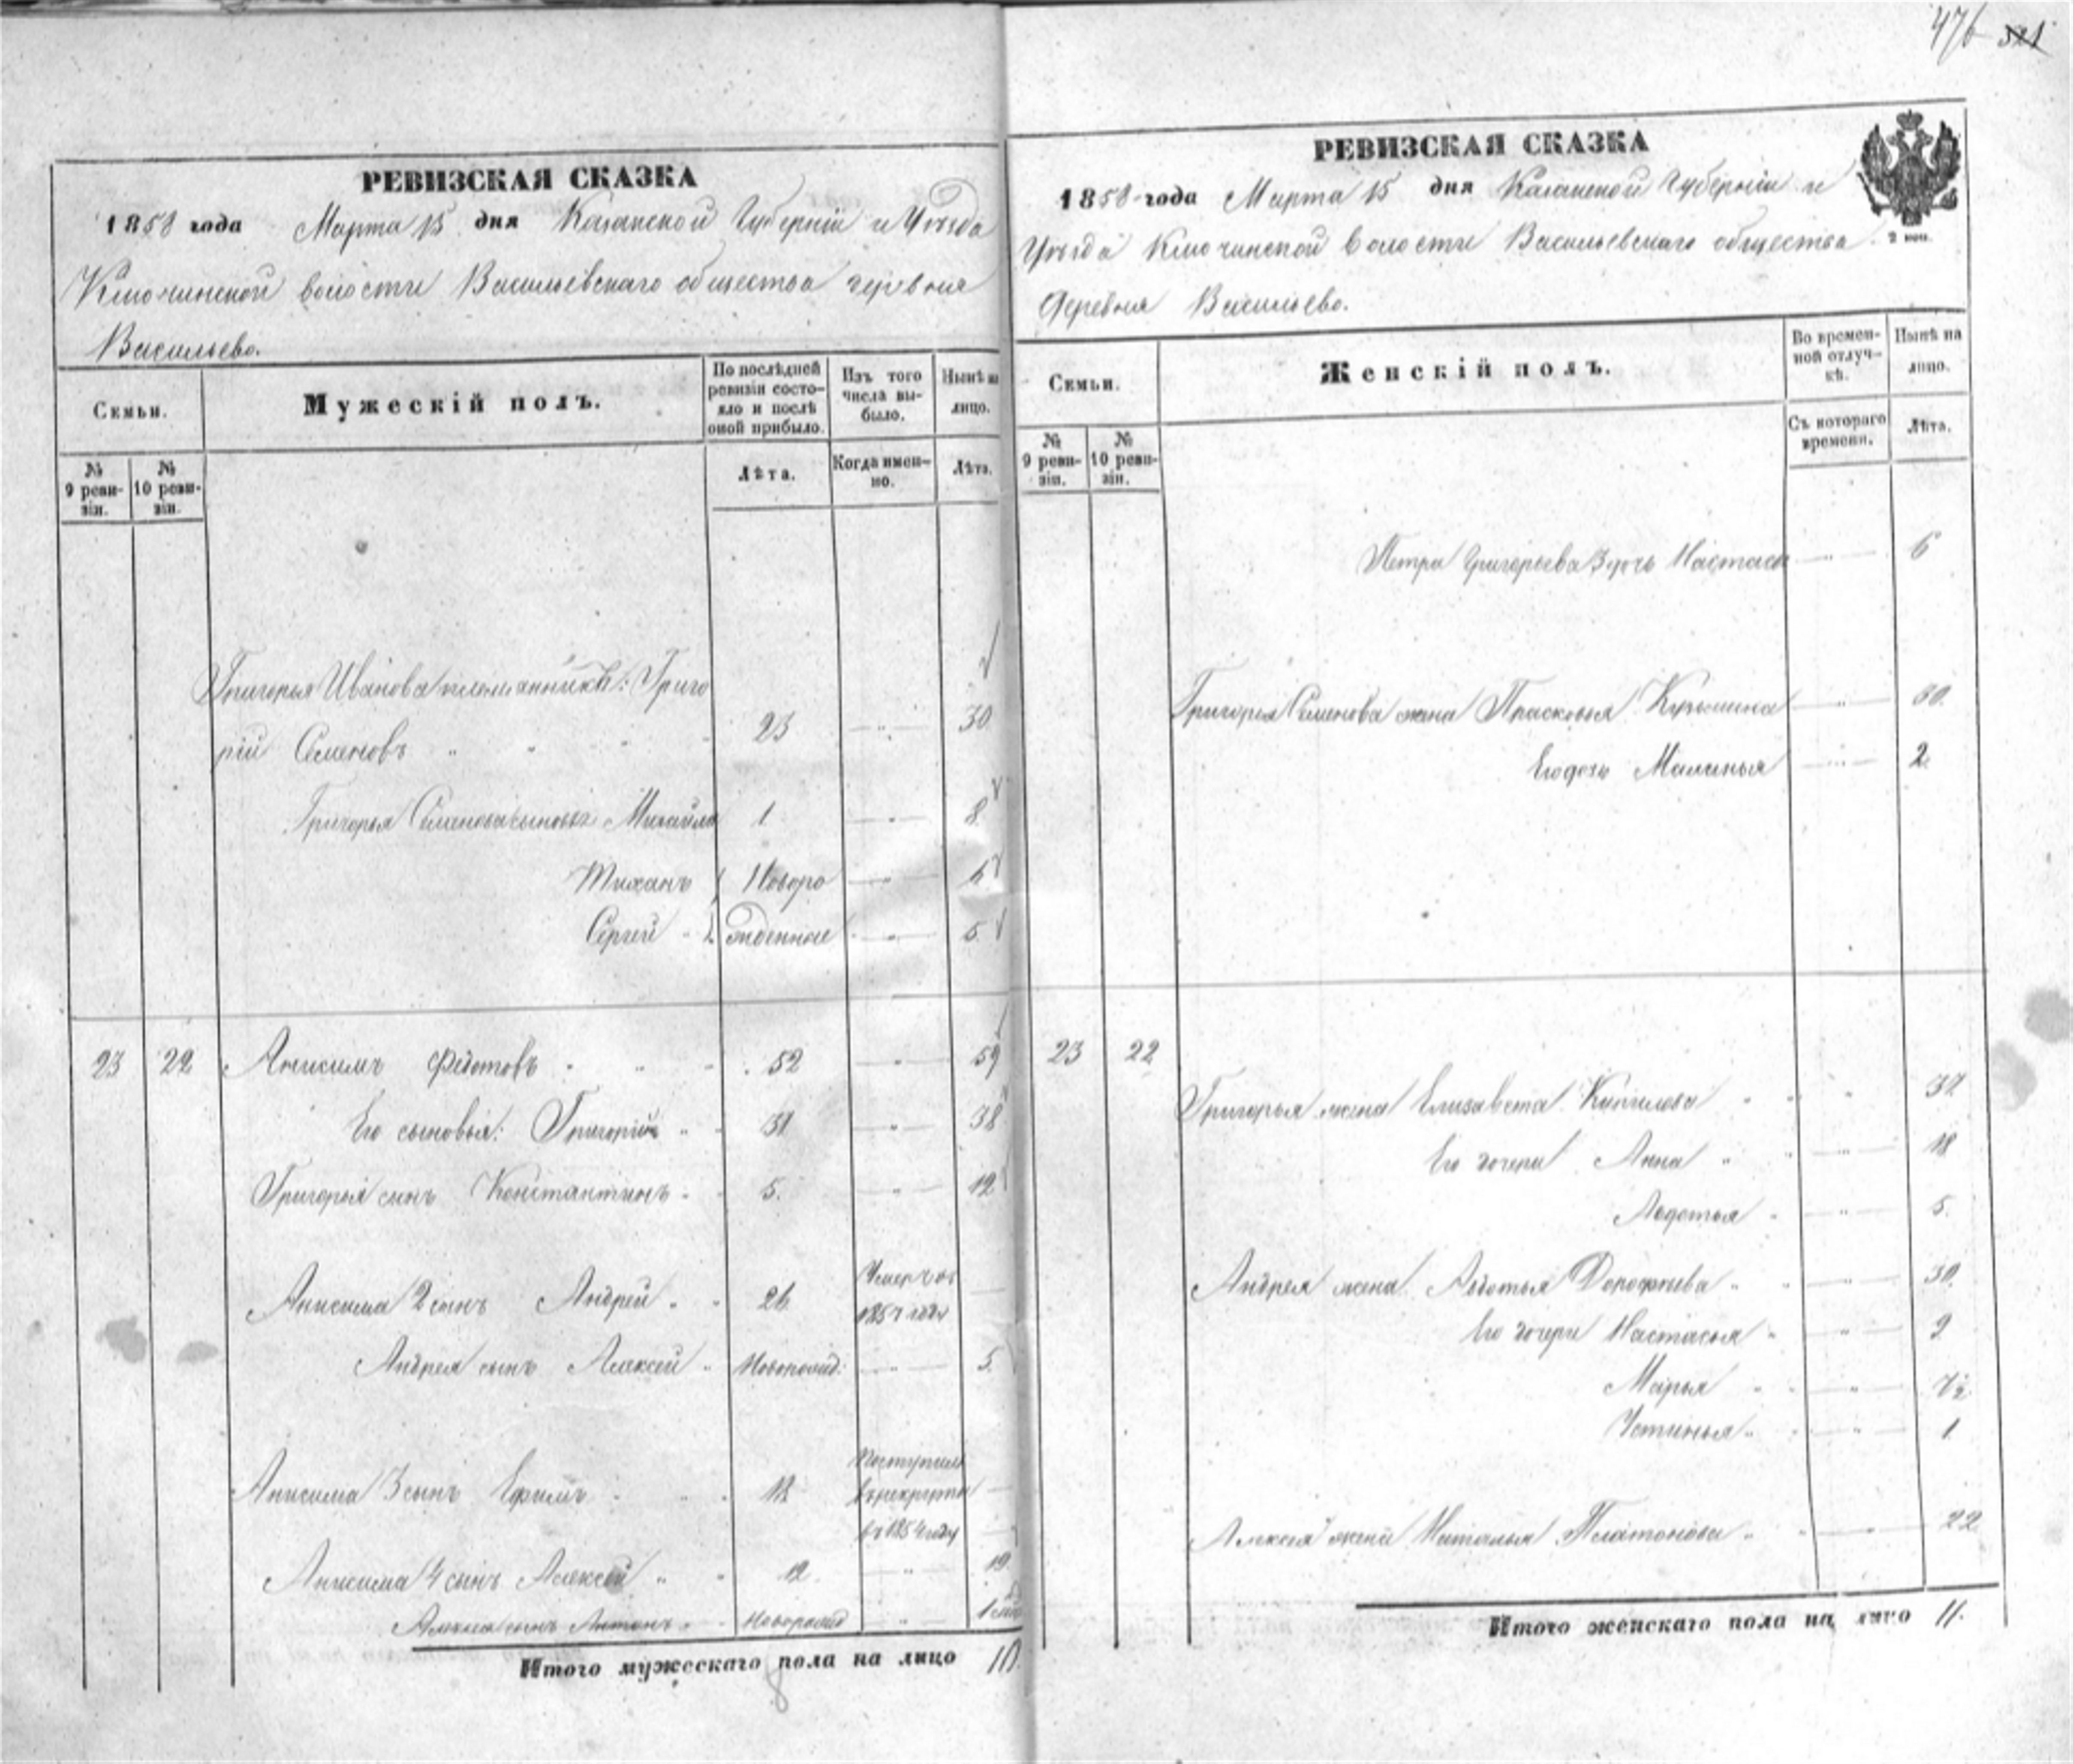 476 521
РЕВИЗСКАЯ СКАЗКА
1858 года Марта 15 дня Казанской Губерніи и Уѣзда
Ключинской волости Васильевскаго общества деревня
Васильево.
Семьи.
Мужескій полъ.
По послѣдней ревизіи состояло и послѣ оной прибыло.
Изъ того числа выбыло.
Нынѣ на лицо.
№ 9 ревизіи.
№ 10 ревизіи.
Лѣта.
Когда именно.
Лѣта.
Григорья Иванова племянники: Григо
рій Семеновъ 23 30
Григорья Семенова сыновья Михайла 1 8
Тиханъ Новоро 6
Сергей жденные 5
23 22 Анисимъ Федотовъ 52 59
Его сыновья: Григорій 31 38
Григорья сынъ Константинъ 5. 12
Анисима 2 сынъ Андрей 26 Умеръ въ
1857 году
Андрея сынъ Алексей Новорожд: 5.
Анисима 3 сынъ Ефимъ 18 Поступилъ
въ рекруты
въ 1854 году
Анисима 4 сынъ Алексей 12 19.
Алексея сынъ Антонъ Новорожд 1
Итого мужескаго пола на лицо 10.
8
РЕВИЗСКАЯ СКАЗКА
1858 года Марта 15 дня Казанской Губерніи и
Уѣзда Ключинской волости Васильевскаго общества
2 коп.
Деревня Васильево.
Семьи.
Женскій полъ.
Во временной отлучкѣ.
Нынѣ на лицо.
№ 9 ревизіи.
№ 10 ревизіи.
Съ котораго времени.
Лѣта.
Петра Григорьева 3 дочь Настасья 6
Григорья Семенова жена Прасковья Кузьмина 30.
Его дочь Маланья 2.
23 22
Григорья жена Елизавета 37
Его дочери Анна 18
Авдотья 5.
Андрея жена Авдотья Дорофеева 30.
Его дочери Настасья 9
Марья 7½
Устинья 1
Алексея жена Наталья Платонова 22
Итого женскаго пола на лицо 11.